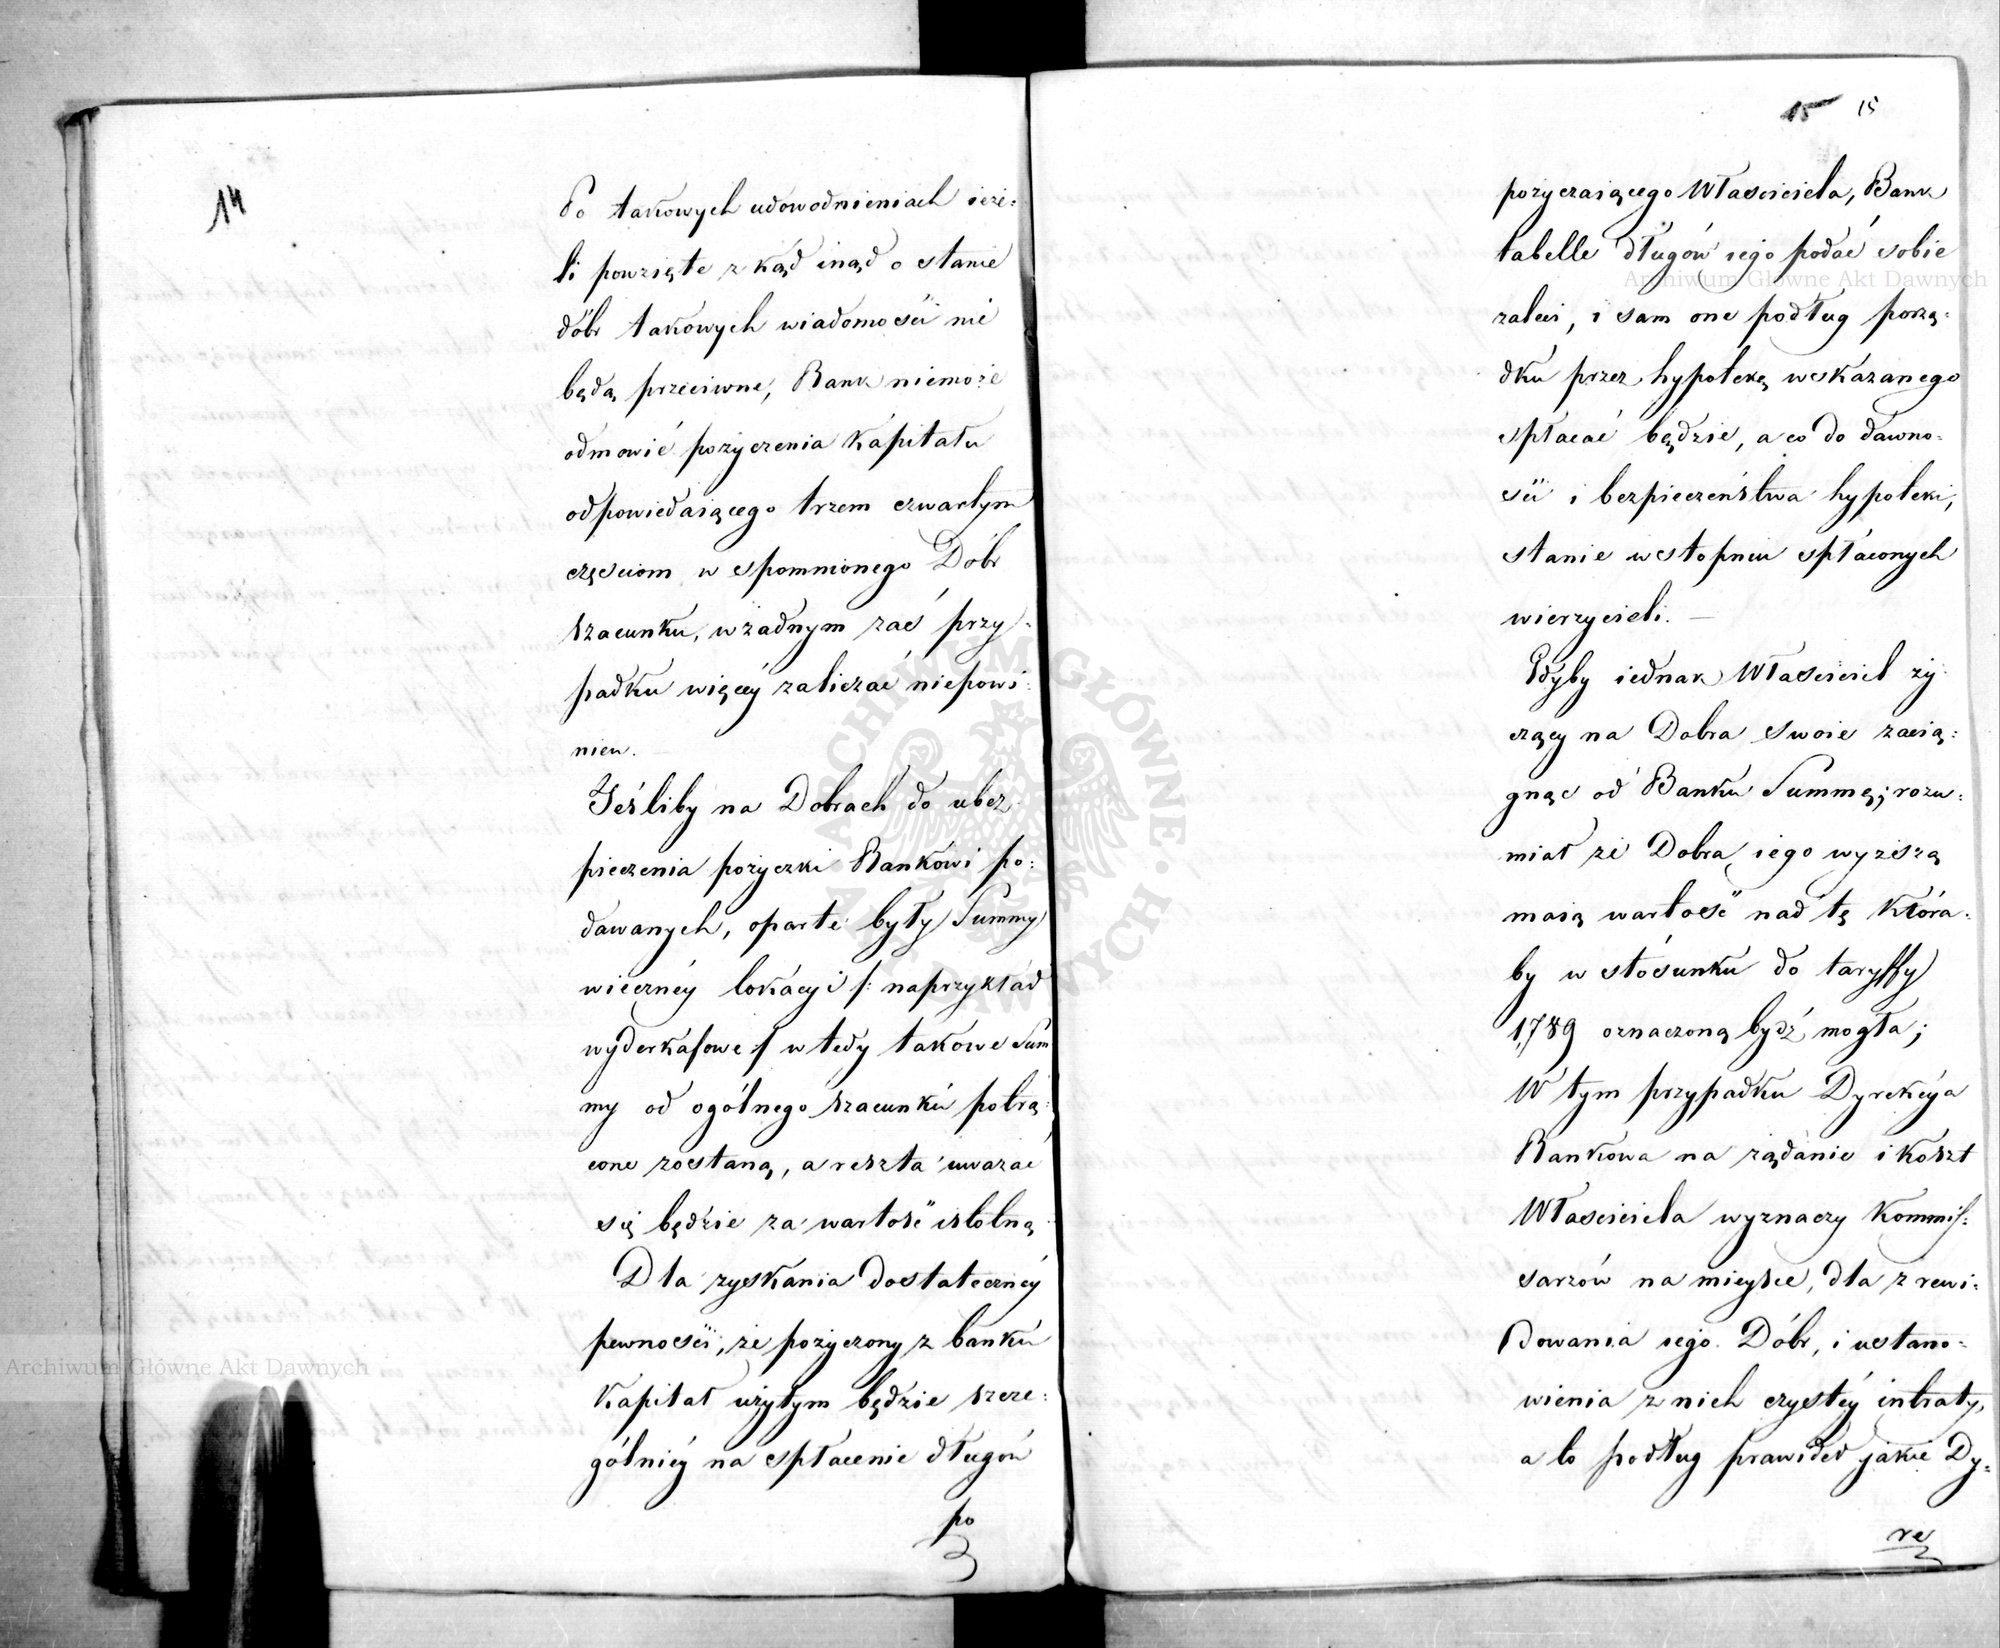 14
Po takowych udowodnieniach ieże:
li powzięte z kąd inąd o stanie
dóbr takowych wiadomości nie
będą przeciwne, Bank niemoże
odmowić pożyczenia Kapitału
odpowiedaiącego trzem czwartym
częściom wspomnionego Dóbr
szacunku, w żadnym zaś przy:
padku więcéy zaliczać niepowi:
nien.
Jeśliby na Dobrach do ubez
pieczenia pożyczki Bankowi po:
dawanych, oparte były Summy
wiecznéy lokácyi /: naprzykład
wyderkafowe :/ wtedy takowe Sum
my od ogólnego szacunku potrą:
cone zostaną, a reszta uwazać
się będzie za wartość istotną
Dla zyskánia dostatecznéy
pewności, że pożyczony z banku
Kapitał użytym będzie szcze:
gólniéy na spłacenie długów
po
15 15
pożyczaiącego Właściciela, Bank
tabelle długów iego podać sobie
zaleci, i sam one podług porzą:
dku przez hypotekę wskazanego
spłacać będzie, a co do dawno:
ści i bezpieczeństwa hypoteki,
stanie w stopniu spłáconych
wierzycieli. —
Gdyby iednak Właściciel ży:
czący na Dobra swoie zacią:
gnąć od Banku Summę; rozu:
miał że Dobra iego wyższą
maią wartość nad tę która:
by w stósunku do taryffy
1789 oznaczoną bydź mogła;
W tym przypadku Dyrekcya
Bankowa na żądanie i koszt
Właściciela wyznaczy Kommis:
sarzów na mieysce, dla zrewi:
dowania iego Dóbr, i ustano:
wienia z nich czystéy intraty,
a to podług prawideł jakie Dy:
re
Archiwum Główne Akt Dawnych
Archiwum Główne Akt Dawnych
ARCHIWUM GŁÓWNE AKT DAWNYCH